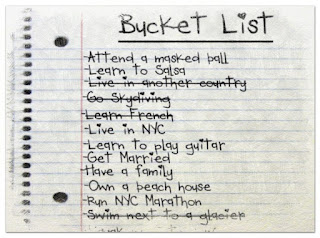 Bucket List
-Attend a masked ball
-Learn to Salsa
-Live in another country
-Go Skydiving
-Learn French
-Live in NYC
-Learn to play guitar
-Get Married
-Have a family
-Own a beach house
-Run NYC Marathon
-Swim next to a glacier